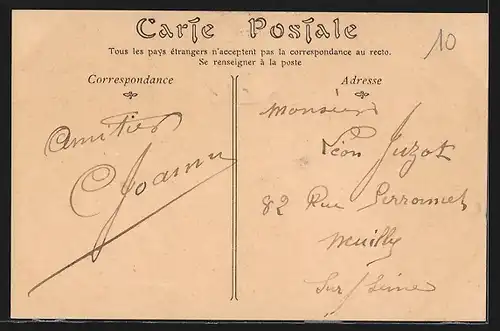 Carte Postale
Tous les pays étrangers n'acceptent pas la correspondance au recto.
Se renseigner à la poste
10
Correspondance
Amitiés
Adresse
Monsieur
Léon Juzot
82 Rue Perronnet
Neuilly
Sur/Seine